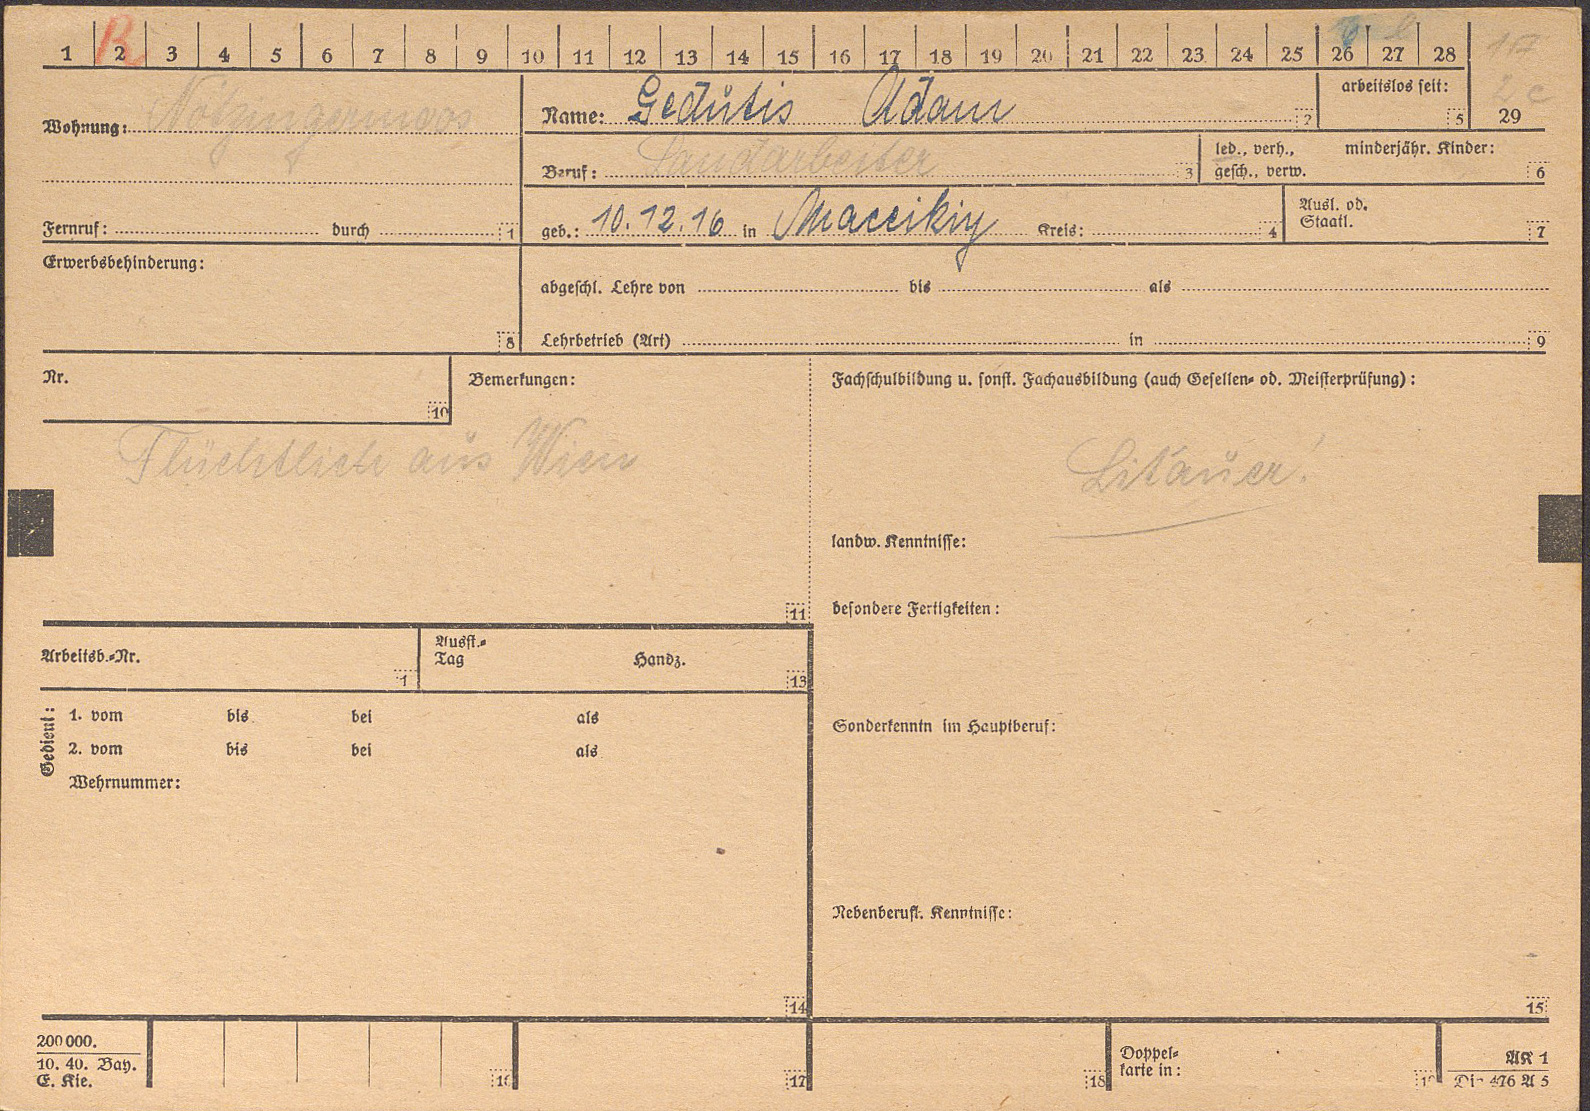 1 2 3 4 5 6 7 8 9 10 11 12 13 14 15 16 17 18 19 20 21 22 23 24 25 26 27 28
R
Wohnung: Nötzingermoos
Name: Gedutis Adam 2
arbeitslos seit: 5
29
Beruf: Landarbeiter 3
led., verh., minderjähr. Kinder:
gesch., verw. 6
Fernruf: durch 1
geb.: 10.12.16 in Maccikiy Kreis: 4
Ausl. od.
Staatl. 7
Erwerbsbehinderung:
8
abgeschl. Lehre von bis als
Lehrbetrieb (Art) in 9
Nr.
10
Bemerkungen:
Flüchtlich aus Wien
11
Fachschulbildung u. sonst. Fachausbildung (auch Gesellen- od. Meisterprüfung):
Litauer!
landw. Kenntnisse:
besondere Fertigkeiten:
Arbeitsb.-Nr. 1
Ausst.-
Tag Handz. 13
Gedient:
1. vom bis bei als
2. vom bis bei als
Wehrnummer:
14
Sonderkenntn im Hauptberuf:
Nebenberufl. Kenntnisse:
15
200 000.
10. 40. Bay.
E. Kie.
16
17
18
Doppel-
karte in:
AK 1
Din 476 A 5